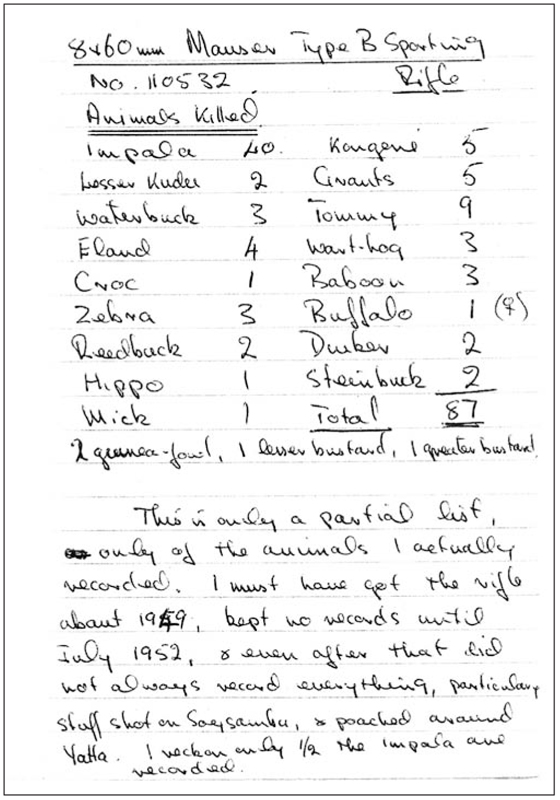 8x60mm Mauser Type B Sporting
No. 110532 Rifle
Animals Killed
Impala 40. Kongoni 5
Lesser Kudu 2 Grants 5
Waterbuck 3 Tommy 9
Eland 4 Wart-hog 3
Croc 1 Baboon 3
Zebra 3 Buffalo 1 (♀)
Reedback 2 Duiker 2
Hippo 1 Steinbuck 2
Mick 1 Total 87
2 guinea-fowl, 1 lesser bustard, 1 greater bustard.
This is only a partial list,
only of the animals I actually
recorded. I must have got the rifle
about 1949, kept no records until
July 1952, & even after that did
not always record everything, particulary
stuff shot on Soysambu, & poached around
Yatta. I reckon only 1/2 the Impala are
recorded.